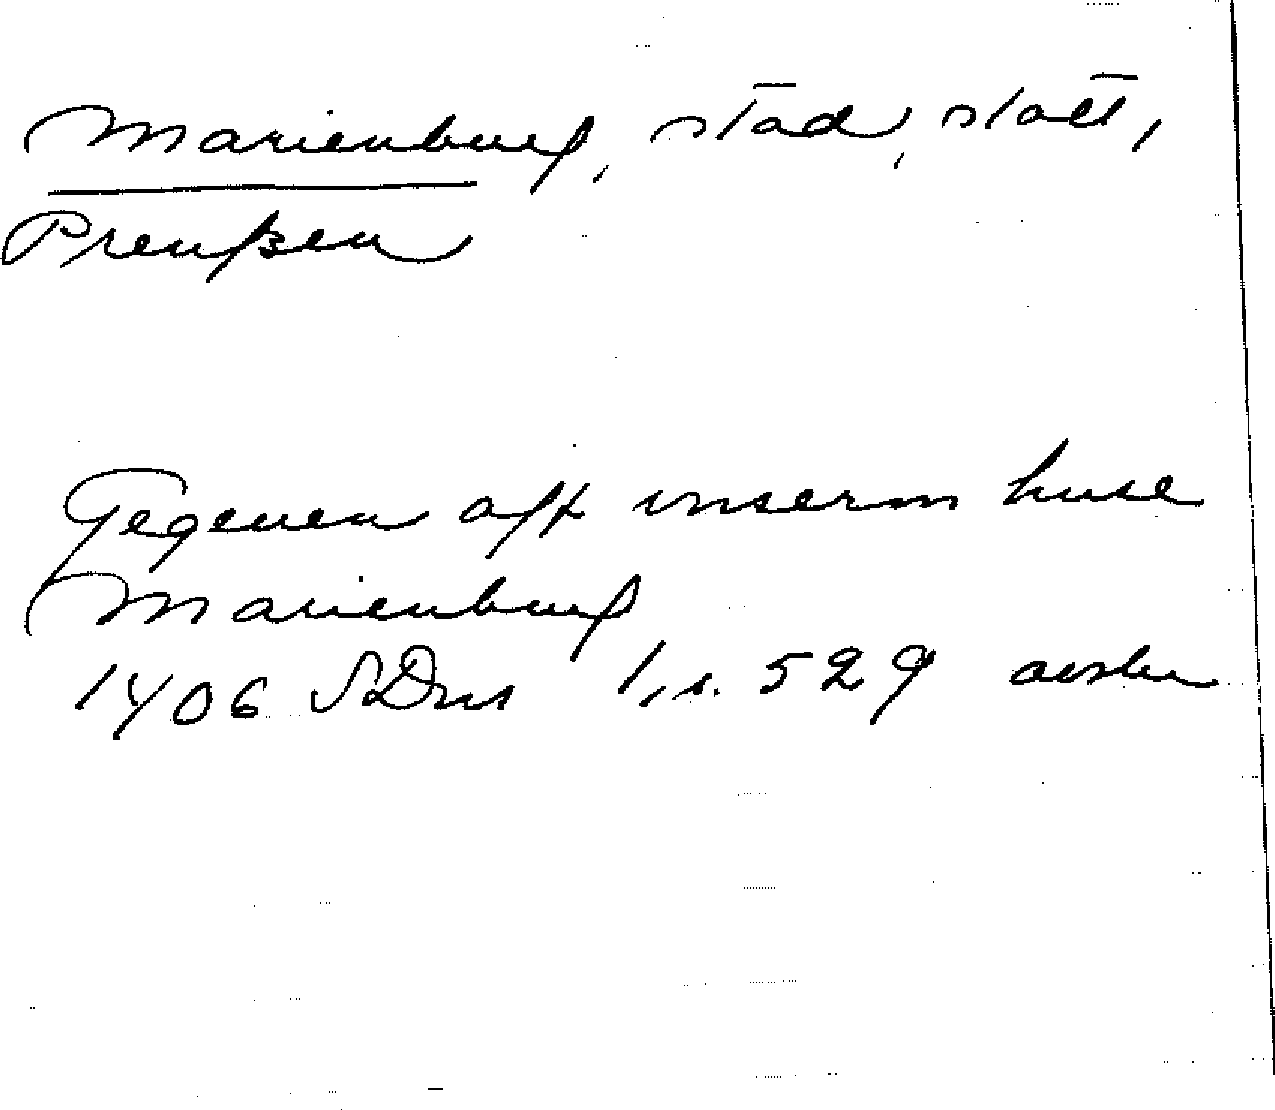 Marienburg, stad, statt,
Preußen
Gegeven off unserm huse
Marienburg
1406 SDns 1, s. 529